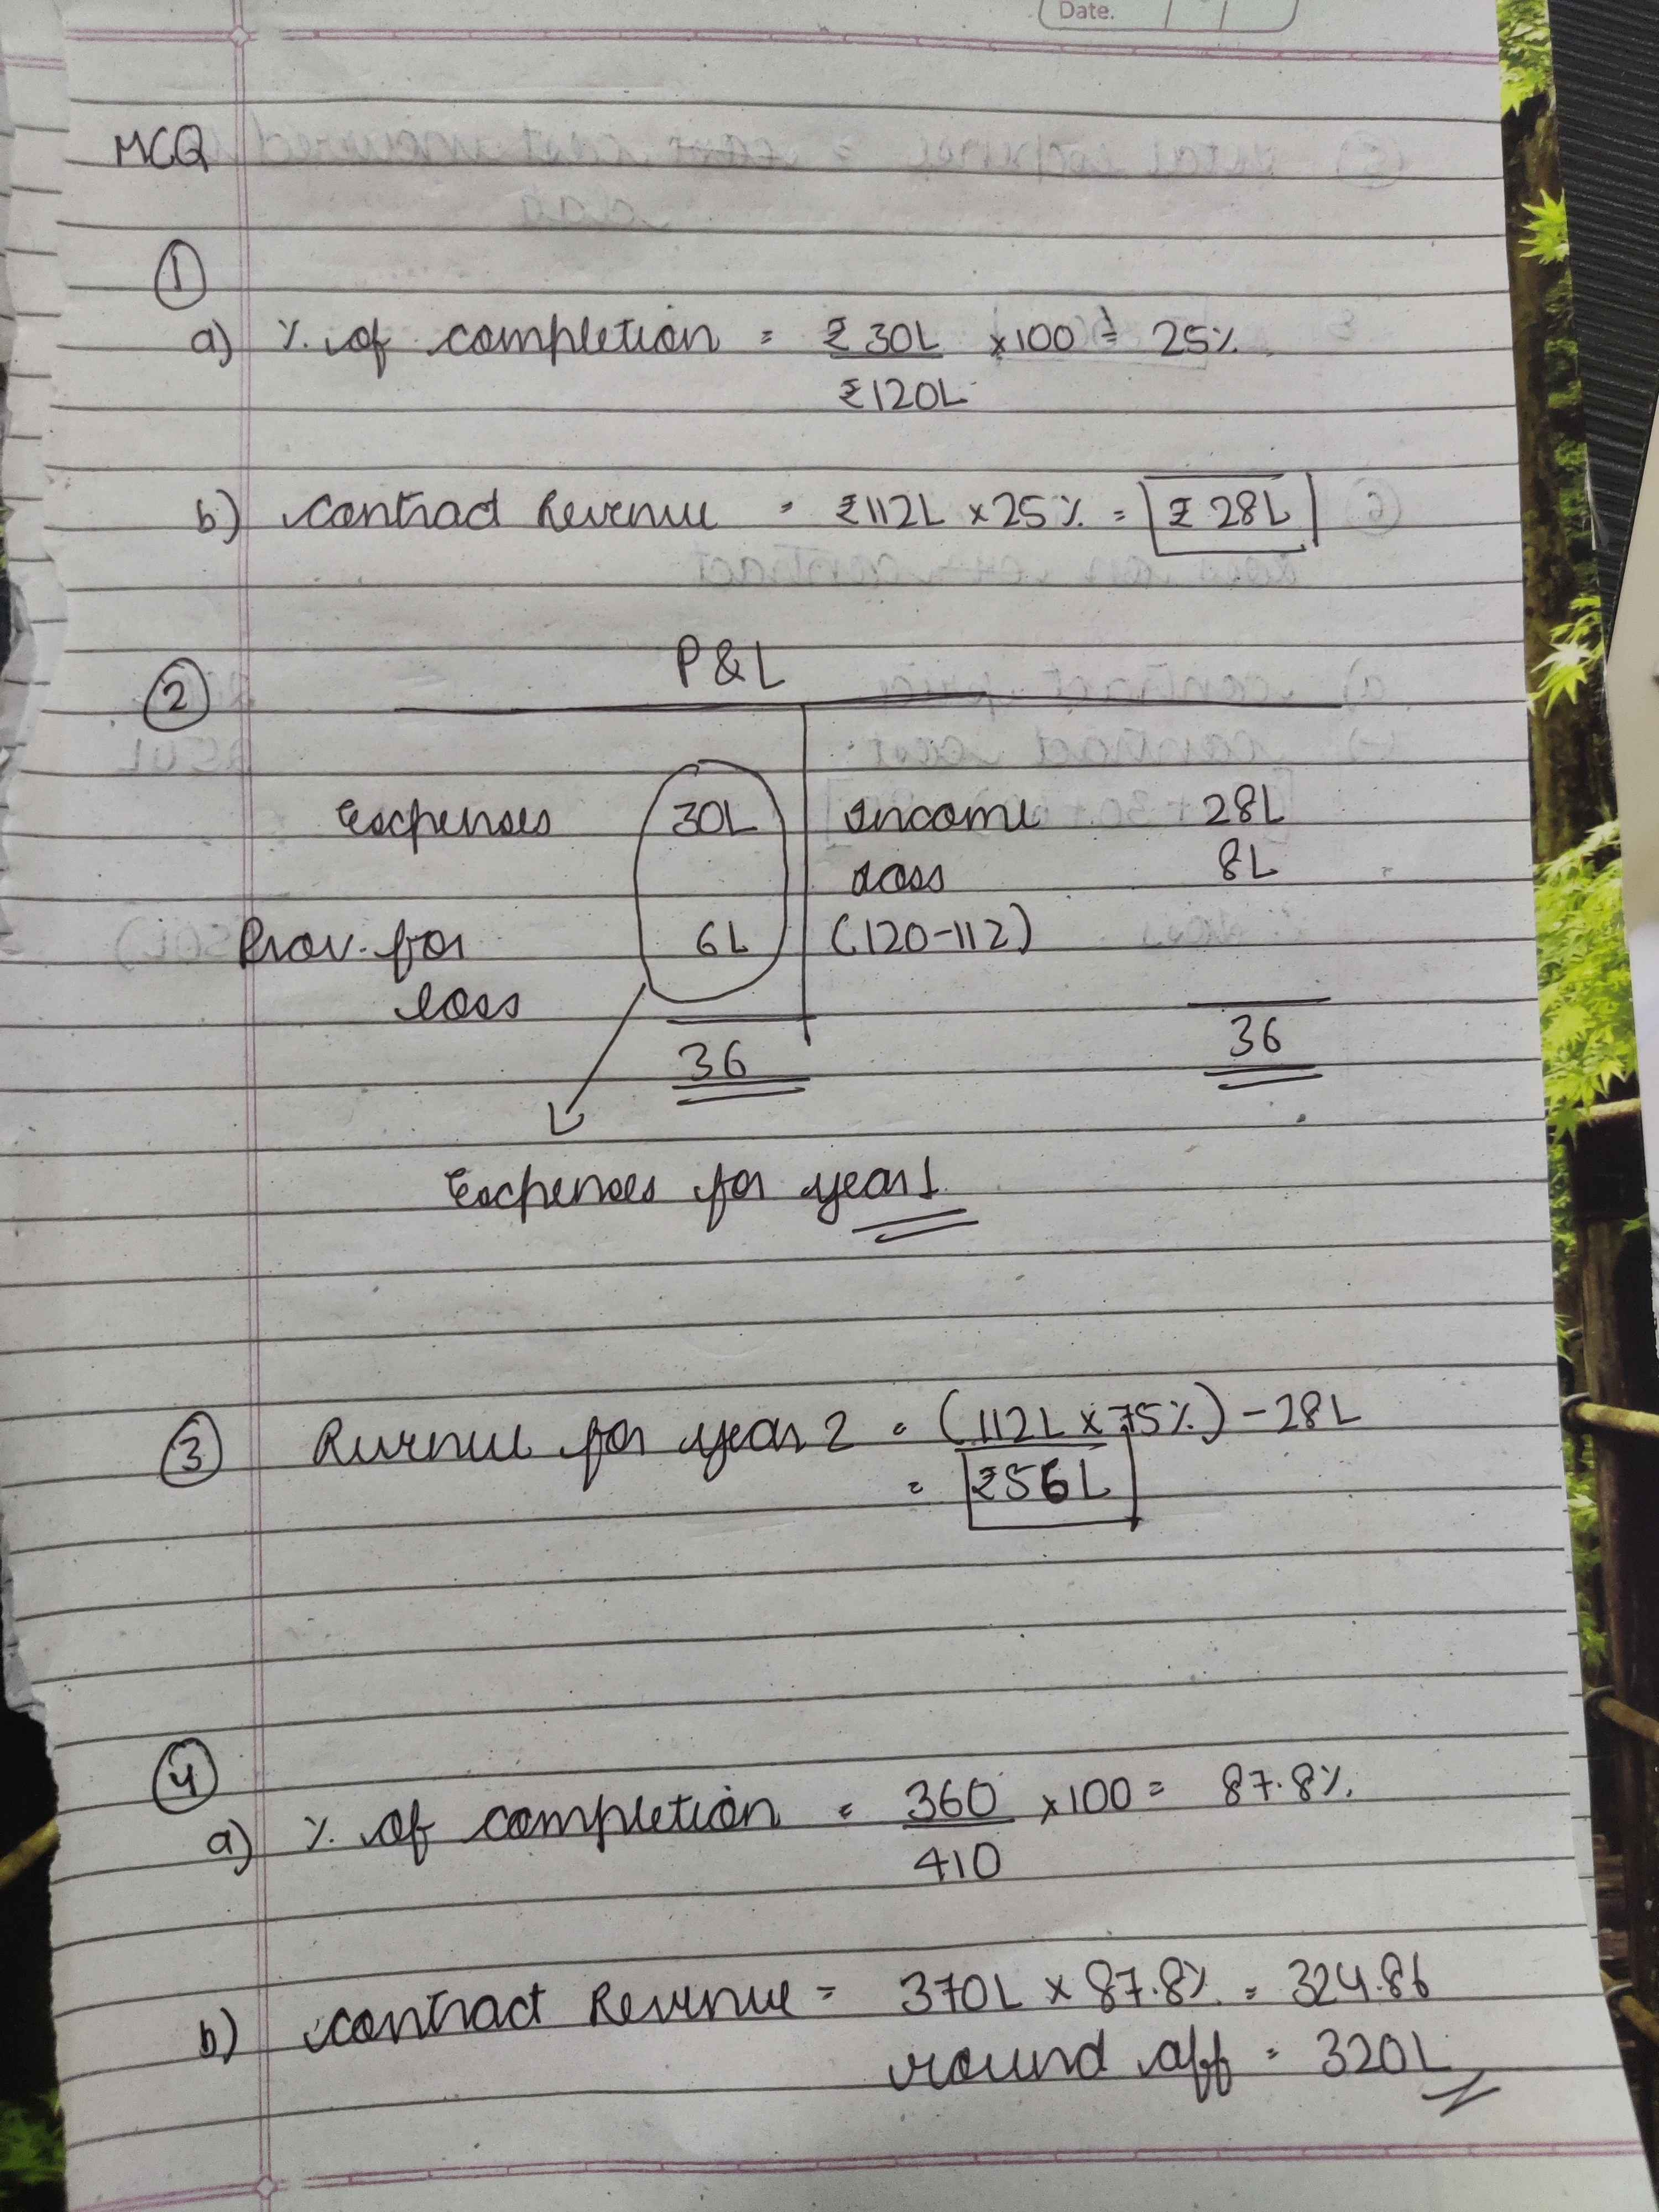 Date.
MCQ
①
a) % of completion = ₹30L / ₹120L × 100 = 25%
b) Contract Revenue = ₹112L × 25% = ₹28L
② P&L
Expenses 30L Income 28L
Loss 8L
Prov. for 6L (120-112)
loss
36 36
Expenses for year 1
③ Revenue for year 2 = (112L × 75%) - 28L
= ₹56L
④
a) % of completion = 360 / 410 × 100 = 87.8%
b) Contract Revenue = 370L × 87.8% = 324.86
round off = 320L